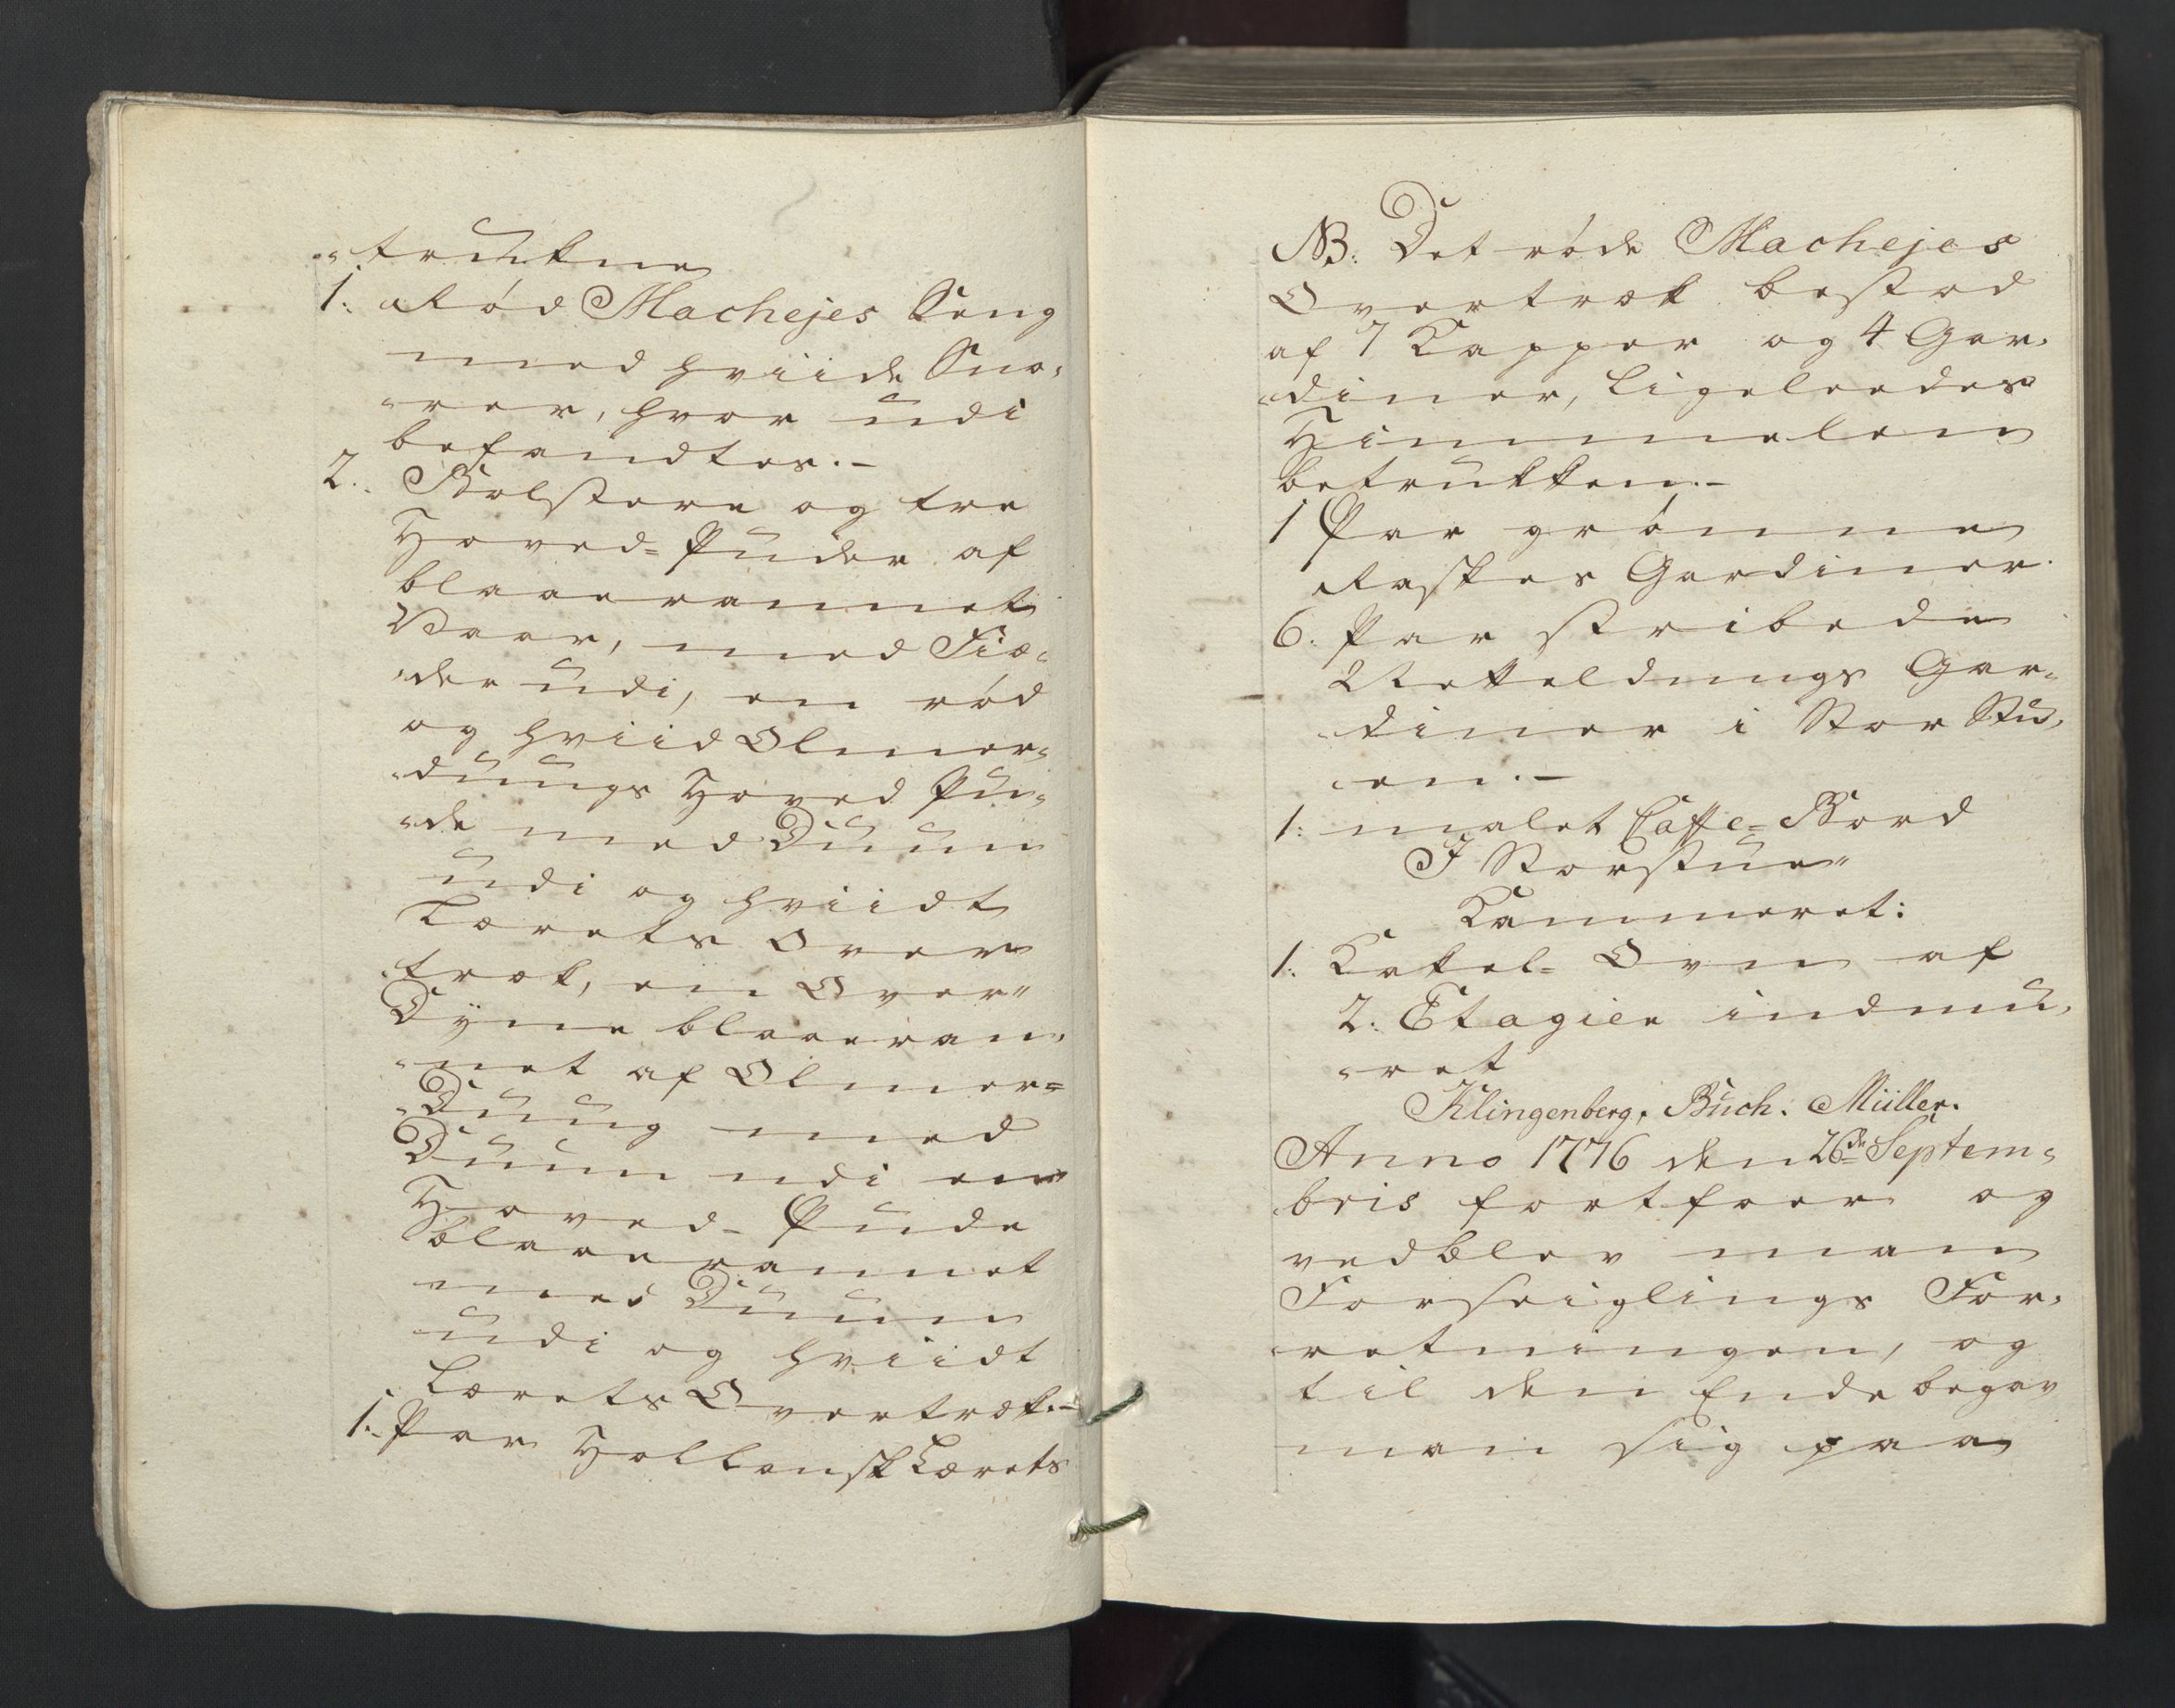 "trukne
1: Rød Machejes Seng
med hviide Sno,
"rer, hvor udi
befandtes.-
2. Bolstere og tre
Hoved-Puder af
blaaerannet
Vaar, med Fiæ,
"der udi, en rød
og hviid Olmer,
"dungs Hoved Pu,
"de med Duun
udi og hviidt
Lærets Over
træk, en Over"
Dÿne blaaeran,
"net af Olmer=
"Dung med
Duun udi en
Hoved-Pude
blaaerannet
med Duun
udi og hviidt
Lærets Overtræk.-
1. Par Hollansk Lærets
NB: Det røde Machejes
Overtræk bestod
af 7 Kapper og 4 Gar,
"diner, ligeleedes
Himmelen
betrukken.-
1 Par grønne
Raskes Gardiner.
6. Par stribede
Verkeldungs Gar,
"diner i Stor Stu,
"en.-
1: malet Caffe-Bord
I Storstue"
Kammeret:
1: Kakel-Ovn af
2: Etagier indmu,
"ret
Klingenberg, Buch. Müller.
Anno 1776 den 26de Septem,
bris fortfoer og
vedblev man
Forseiglings For,
retningen, og
til den Ende begav
man sig paa